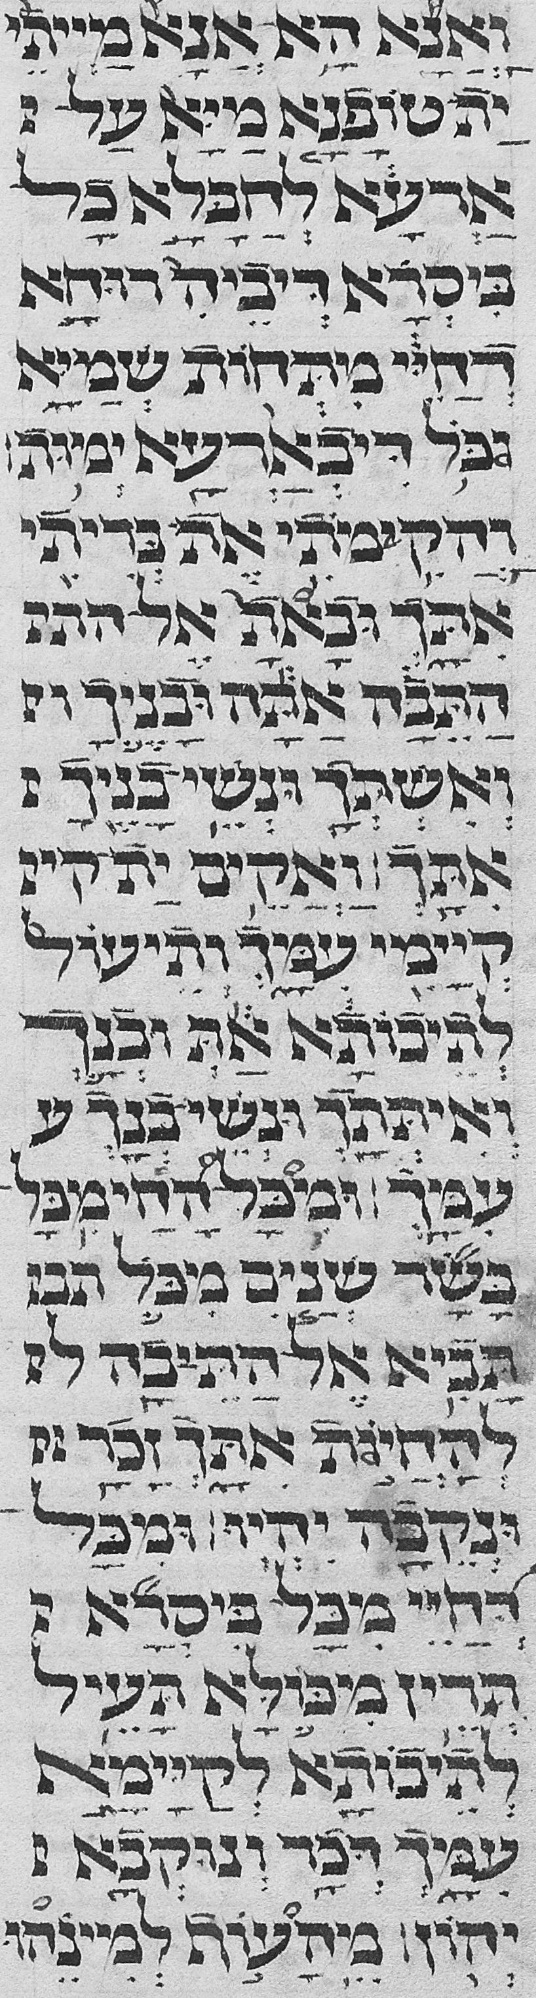 וַאֲנָא הָא אֲנָא מַיְיתֵי
יָת טוֹפָנָא מַיָּא עַל
אַרְעָא לְחַבָּלָא כָּל
בִּיסְרָא דִּיבֵיהּ רוּחָא
דְּחַיֵּי מִתְּחוֹת שְׁמַיָּא
וּכֹּל דִּיבְאַרְעָא יְמוּת׃
וַהֲקִימֹתִי אֶת בְּרִיתִי
אִתָּךְ וּבָאתָ אֶל התו
הַתֵּבָה אַתָּה וּבָנֶיךָ וּ
וְאִשְׁתְּךָ וּנְשֵׁי בָנֶיךָ
אִתָּךְ׃ וַאֲקִים יָת קיי
קְיָימִי עִמָּךְ וְתֵיעוֹל
לְתֵיבוֹתָא אַתְּ וּבְנָךְ
וְאִיתְּתָךְ וּנְשֵׁי בְנָךְ ע
עִמָּךְ׃ וּמִכָּל הָחַי מִכָּל
בָּשָׂר שְׁנַיִם מִכֹּל תבו
תָּבִיא אֶל הַתֵּיבָה ל
לְהַחֲיוֹת אִתָּךְ זָכָר ונ
וּנְקֵבָה יִהְיוּ׃ וּמִכָּל
דְּחַיֵּי מִכָּל בִּיסְרָא
תְּרֵין מִכּוֹלָּא תָּעֵיל
לְתֵיבוֹתָא לְקַיָּימָא
עִמָּךְ דְּכַר וְנוּקְבָא
יְהוֹן׃ מֵהָעוֹף לְמִינֵהוּ